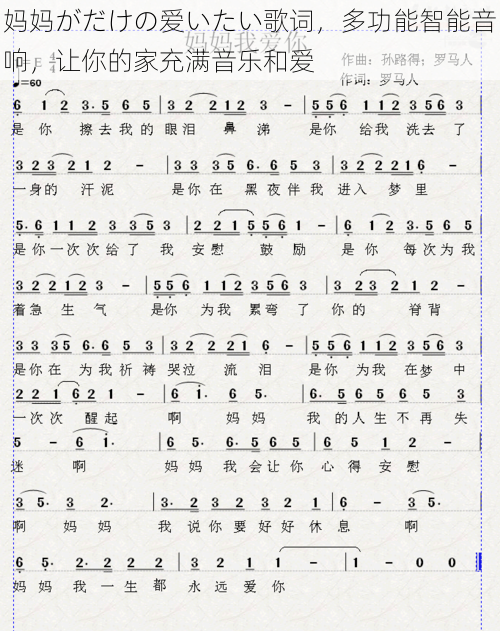 妈妈がだけの爱いたい歌词，多功能智能音
响，让你的家充满音乐和爱
妈妈我爱你
作曲：孙路得；罗马人
作词：罗马人
♩=60
6 1 2 3· 5 6 5 | 3 2 2 1 2 3 - | 5 5 6 1 1 2 3 5 6 3
是 你 擦 去 我 的 眼 泪 鼻 涕 是 你 给 我 洗 去 了
3 2 3 2 1 2 - | 3 3 3 5 6· 6 5 3 | 3 2 2 2 1 6 -
一 身 的 汗 泥 是 你 在 黑 夜 伴 我 进 入 梦 里
5· 6 1 1 2 3 3 5 3 | 2 2 1 5 5 6 1 - | 6 1 2 3· 5 6 5
是 你 一 次 次 给 了 我 安 慰 鼓 励 是 你 每 次 为 我
3 2 2 1 2 3 - | 5 5 6 1 1 2 3 5 6 3 | 3 2 3 2 1 2 -
着 急 生 气 是 你 为 我 累 弯 了 你 的 脊 背
3 3 3 5 6· 6 5 3 | 3 2 2 2 1 6 - | 5 5 6 1 1 2 3 5 6 3
是 你 在 为 我 祈 祷 哭 泣 流 泪 是 你 为 我 在 梦 中
2 2 1 1 6 2 1 - | 6 1· 6 5· | 6· 5 6 5 6 5 3
一 次 次 醒 起 啊 妈 妈 我 的 人 生 不 再 失
5 - 6 1· | 6 5 6· 5 6 5 | 6 5 1 2 -
迷 啊 妈 妈 我 会 让 你 心 得 安 慰
3 5· 3 2· | 3· 2 3 2 3 2 1 | 6 - 3 5·
啊 妈 妈 我 说 你 要 好 好 休 息 啊
6 5· 2· 2 2 2 | 3 2 1 1 - | 1 - 0 0
妈 妈 我 一 生 都 永 远 爱 你